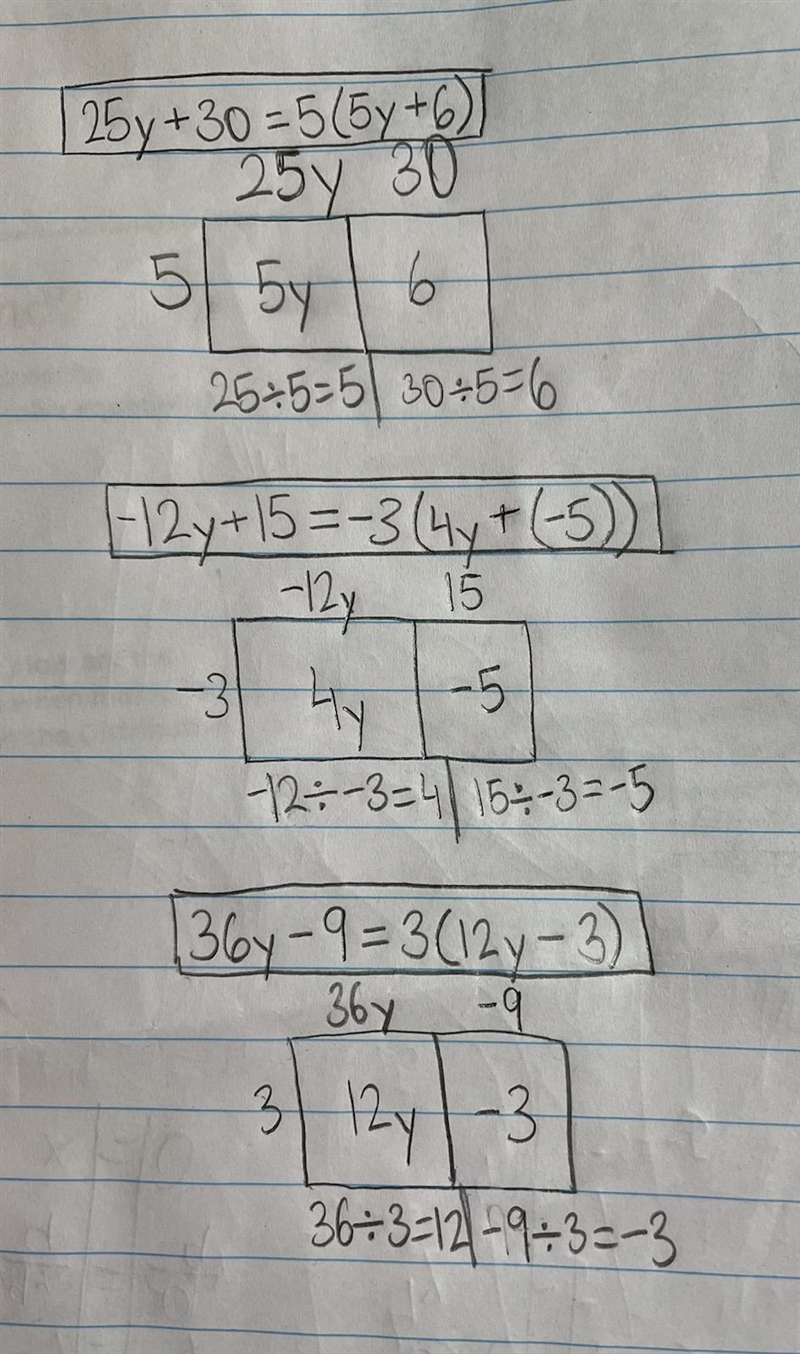 25y+30=5(5y+6)
25y 30
5 5y 6
25÷5=5 30÷5=6
-12y+15=-3(4y+(-5))
-12y 15
-3 4y -5
-12÷-3=4 15÷-3=-5
36y-9=3(12y-3)
36y -9
3 12y -3
36÷3=12 -9÷3=-3